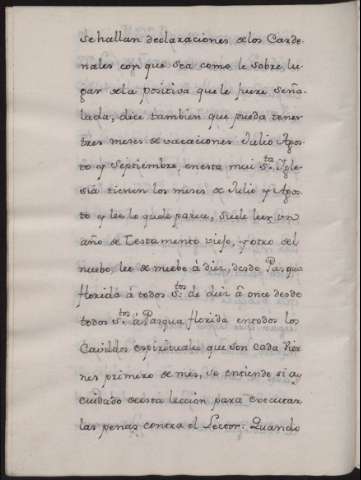 se hallan declaraciones de los Carde-
nales con que sea como le sobre, lu-
gar de la positiva que le fuere seña-
lada, dice tambien que pueda tener
tres meses de vacaiones Julio Agos-
to y Septiembre, en esta mui S.ta Igle-
sia tienen los meses de Julio y Agos-
to y lee lo quele parece, suele leer un
año de Testamento viejo, y otro del
nuebo, lee de nuebe á diez, desde Pasqua
florida á todos S.tos de diez á once desde
todos S.tos á Pasqua florida en todos los
Cavildos espirituales que son cada Vier-
nes primero de mes, se entiende si ay
cuidado de esta leccion para executar
las penas contra el Lector. Quando